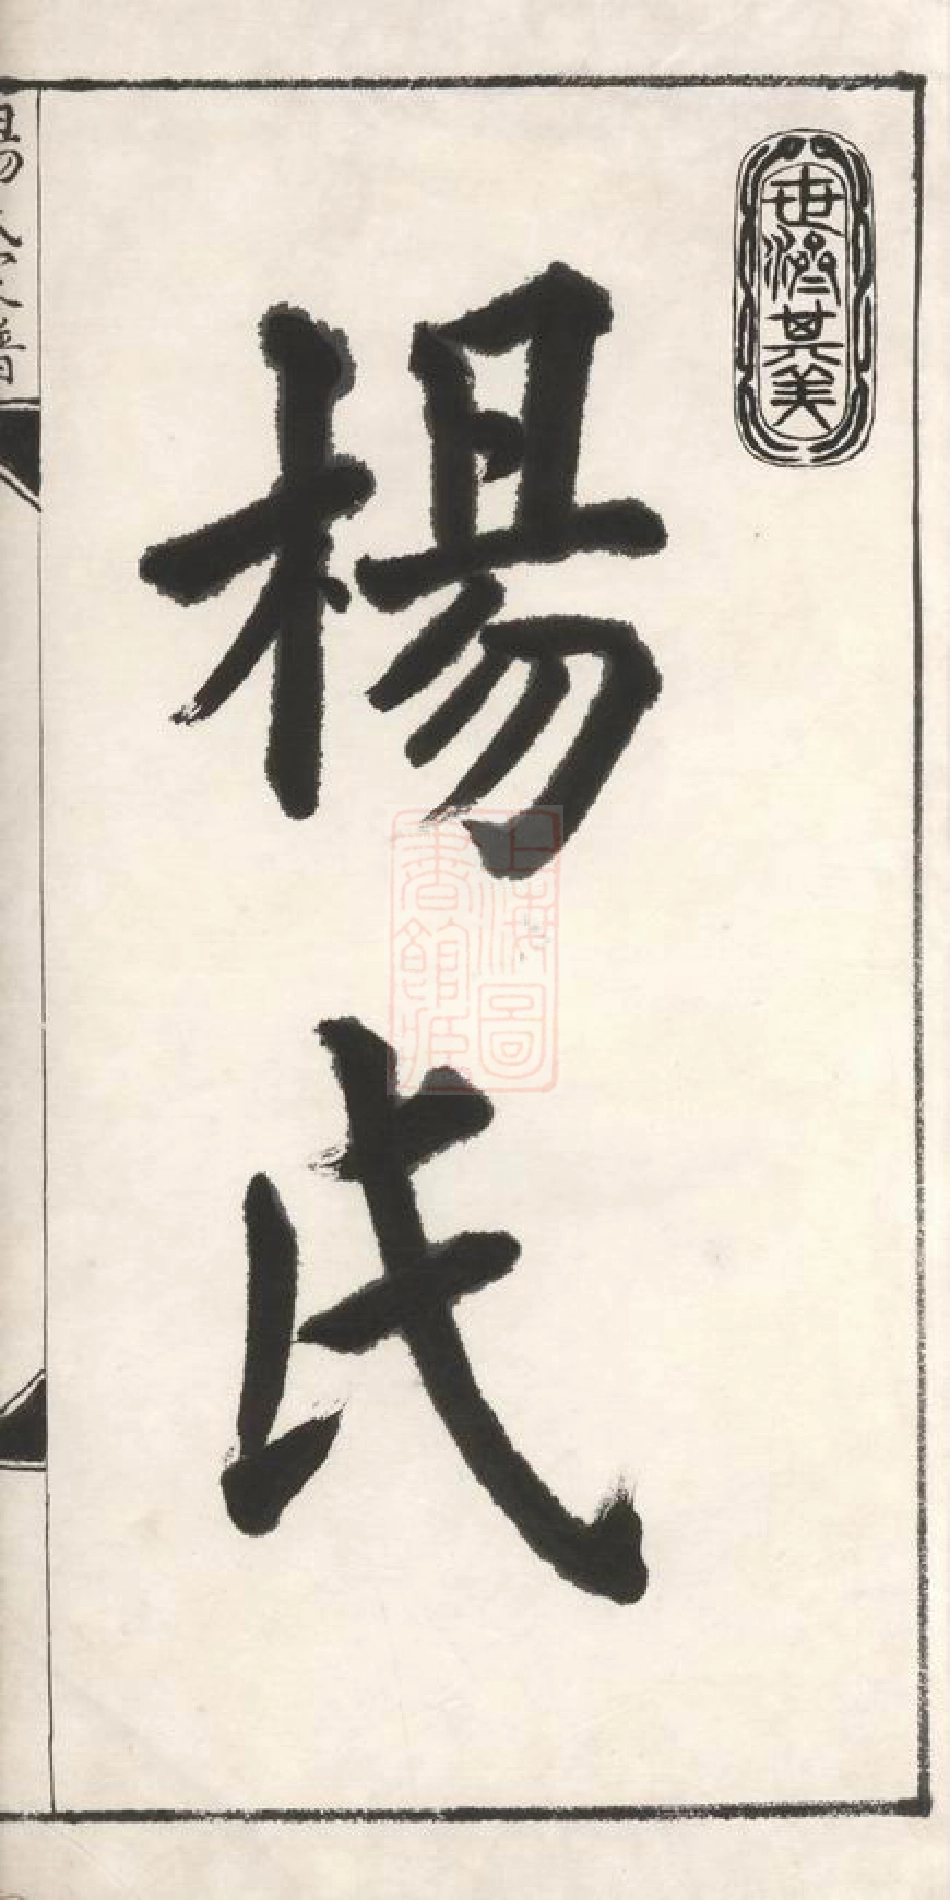 世濟其美
楊氏
上海圖
書館藏